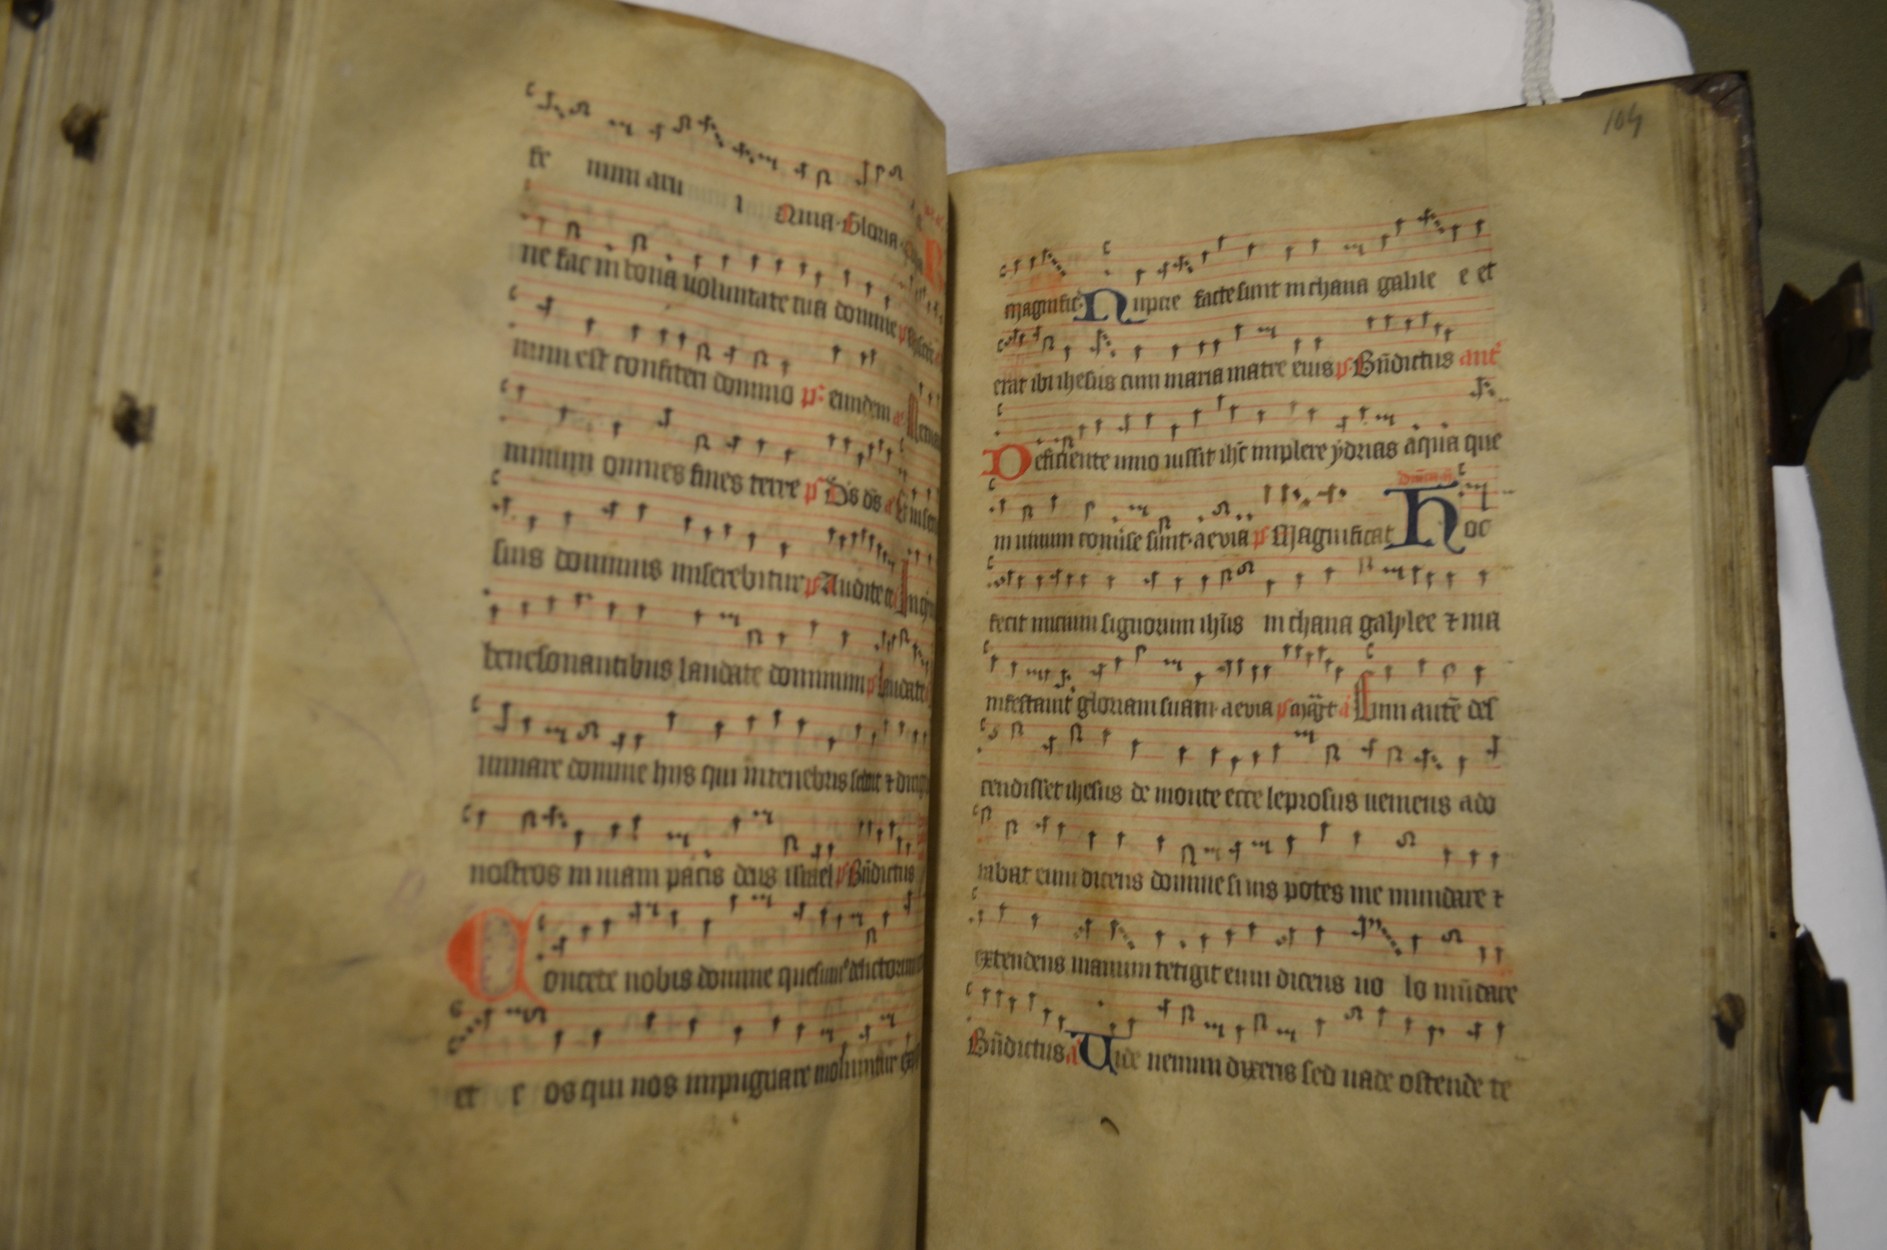 num aru i Nuia Gloria
ne fac in bona voluntate tua domine ps
num est confiteri domino ps eiundem
minum omnes fines terre ps Ds ds
suis dominus miserebitur ps Audite
benesonantibus laudate dominum ps laudate
minare domine hiis qui in tenebris sedent &
nostros in viam pacis deus israel ps Bndictus
Concede nobis domine quesumus delictorum
et e os qui nos impugnare moliuntur
104
magnificat Nuptie facte sunt in chana galile e et
erat ibi ihesus cum maria matre eius ps Bndictus ant
Deficiente vino iussit ihc implere ydrias aqua que
in vinum conuerse sunt aevia ps Magnificat Hoc
fecit inicium signorum ihus in chana galylee & ma
nifestauit gloriam suam aevia ps a Cum autem des
cendisset ihesus de monte ecce leprosus ueniens ado
rabat eum dicens domine si uis potes me mundare &
extendens manum tetigit eum dicens uo lo mundare
Bndictus a Uide nemini dixeris sed uade ostende te